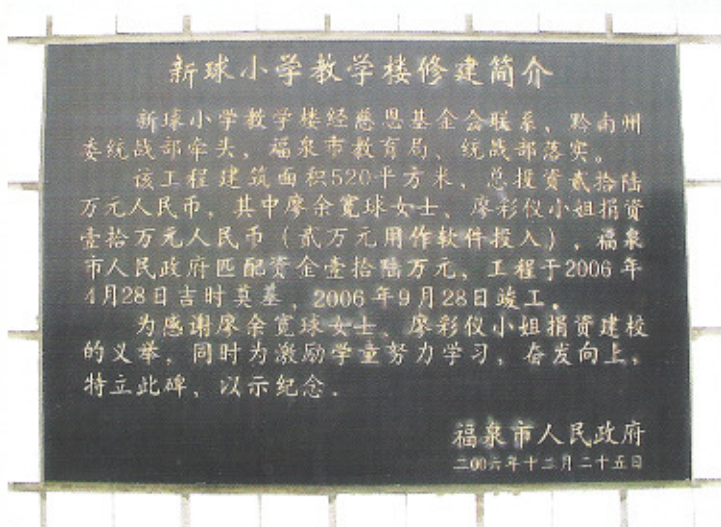 新球小学教学楼修建简介
新球小学教学楼经慈恩基金会联系、黔南州
委统战部牵头，福泉市教育局、统战部落实。
该工程建筑面积520平方米，总投资贰拾陆
万元人民币，其中廖余宽球女士、廖彩仪小姐捐资
壹拾万元人民币（贰万元用作软件投入），福泉
市人民政府匹配资金壹拾陆万元，工程于2006年
4月28日吉时奠基，2006年9月28日竣工。
为感谢廖余宽球女士、廖彩仪小姐捐资建校
的义举，同时为激励学童努力学习，奋发向上，
特立此碑，以示纪念。
福泉市人民政府
二00六年十二月二十五日